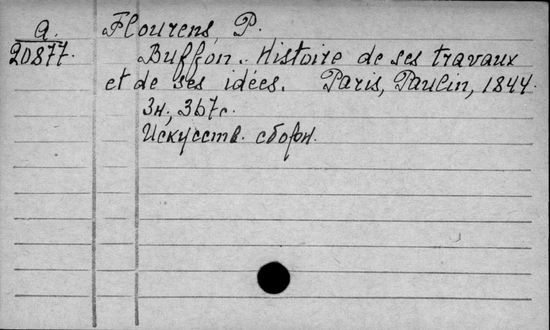 a.
20877.
Flourens, P.
Buffon. Histoire de ses travaux
et de ses idées. Paris, Paulin, 1844.
3н, 367с.
Искусств. сборн.